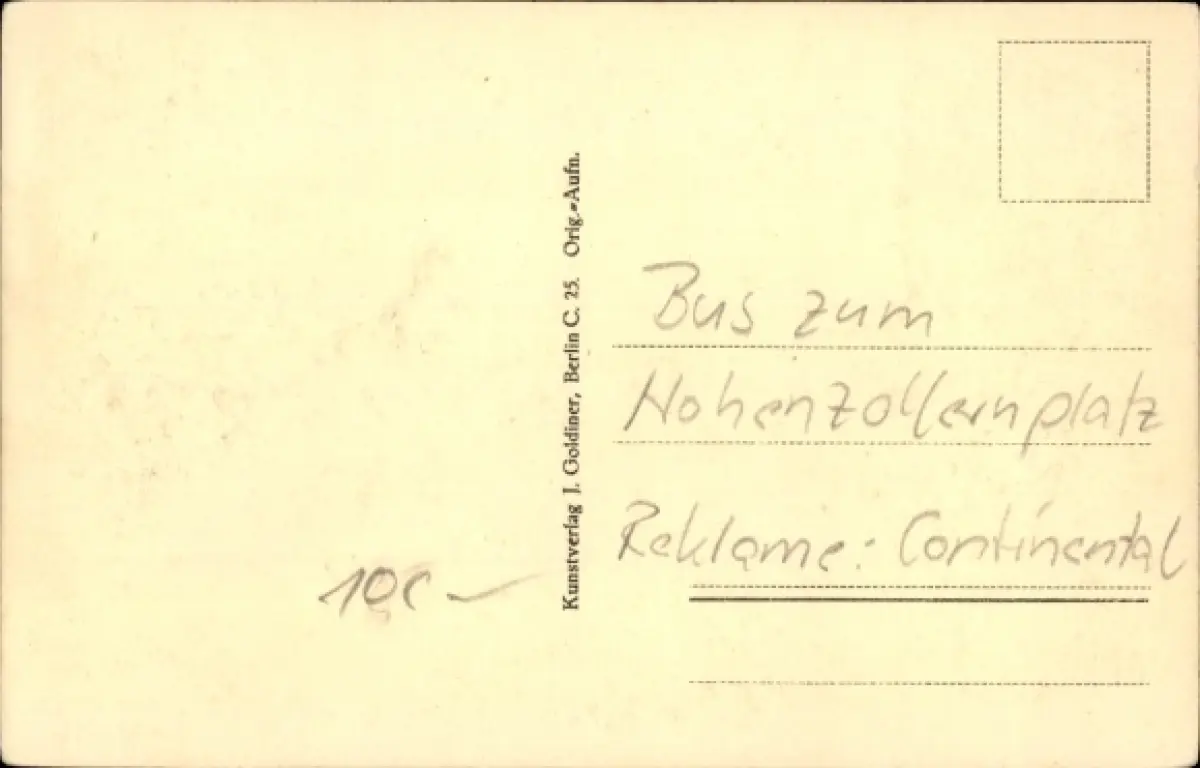 Kunstverlag J. Goldiner, Berlin C. 25. Orig.-Aufn.
Bus zum
Hohenzollernplatz
Reklame: Continental